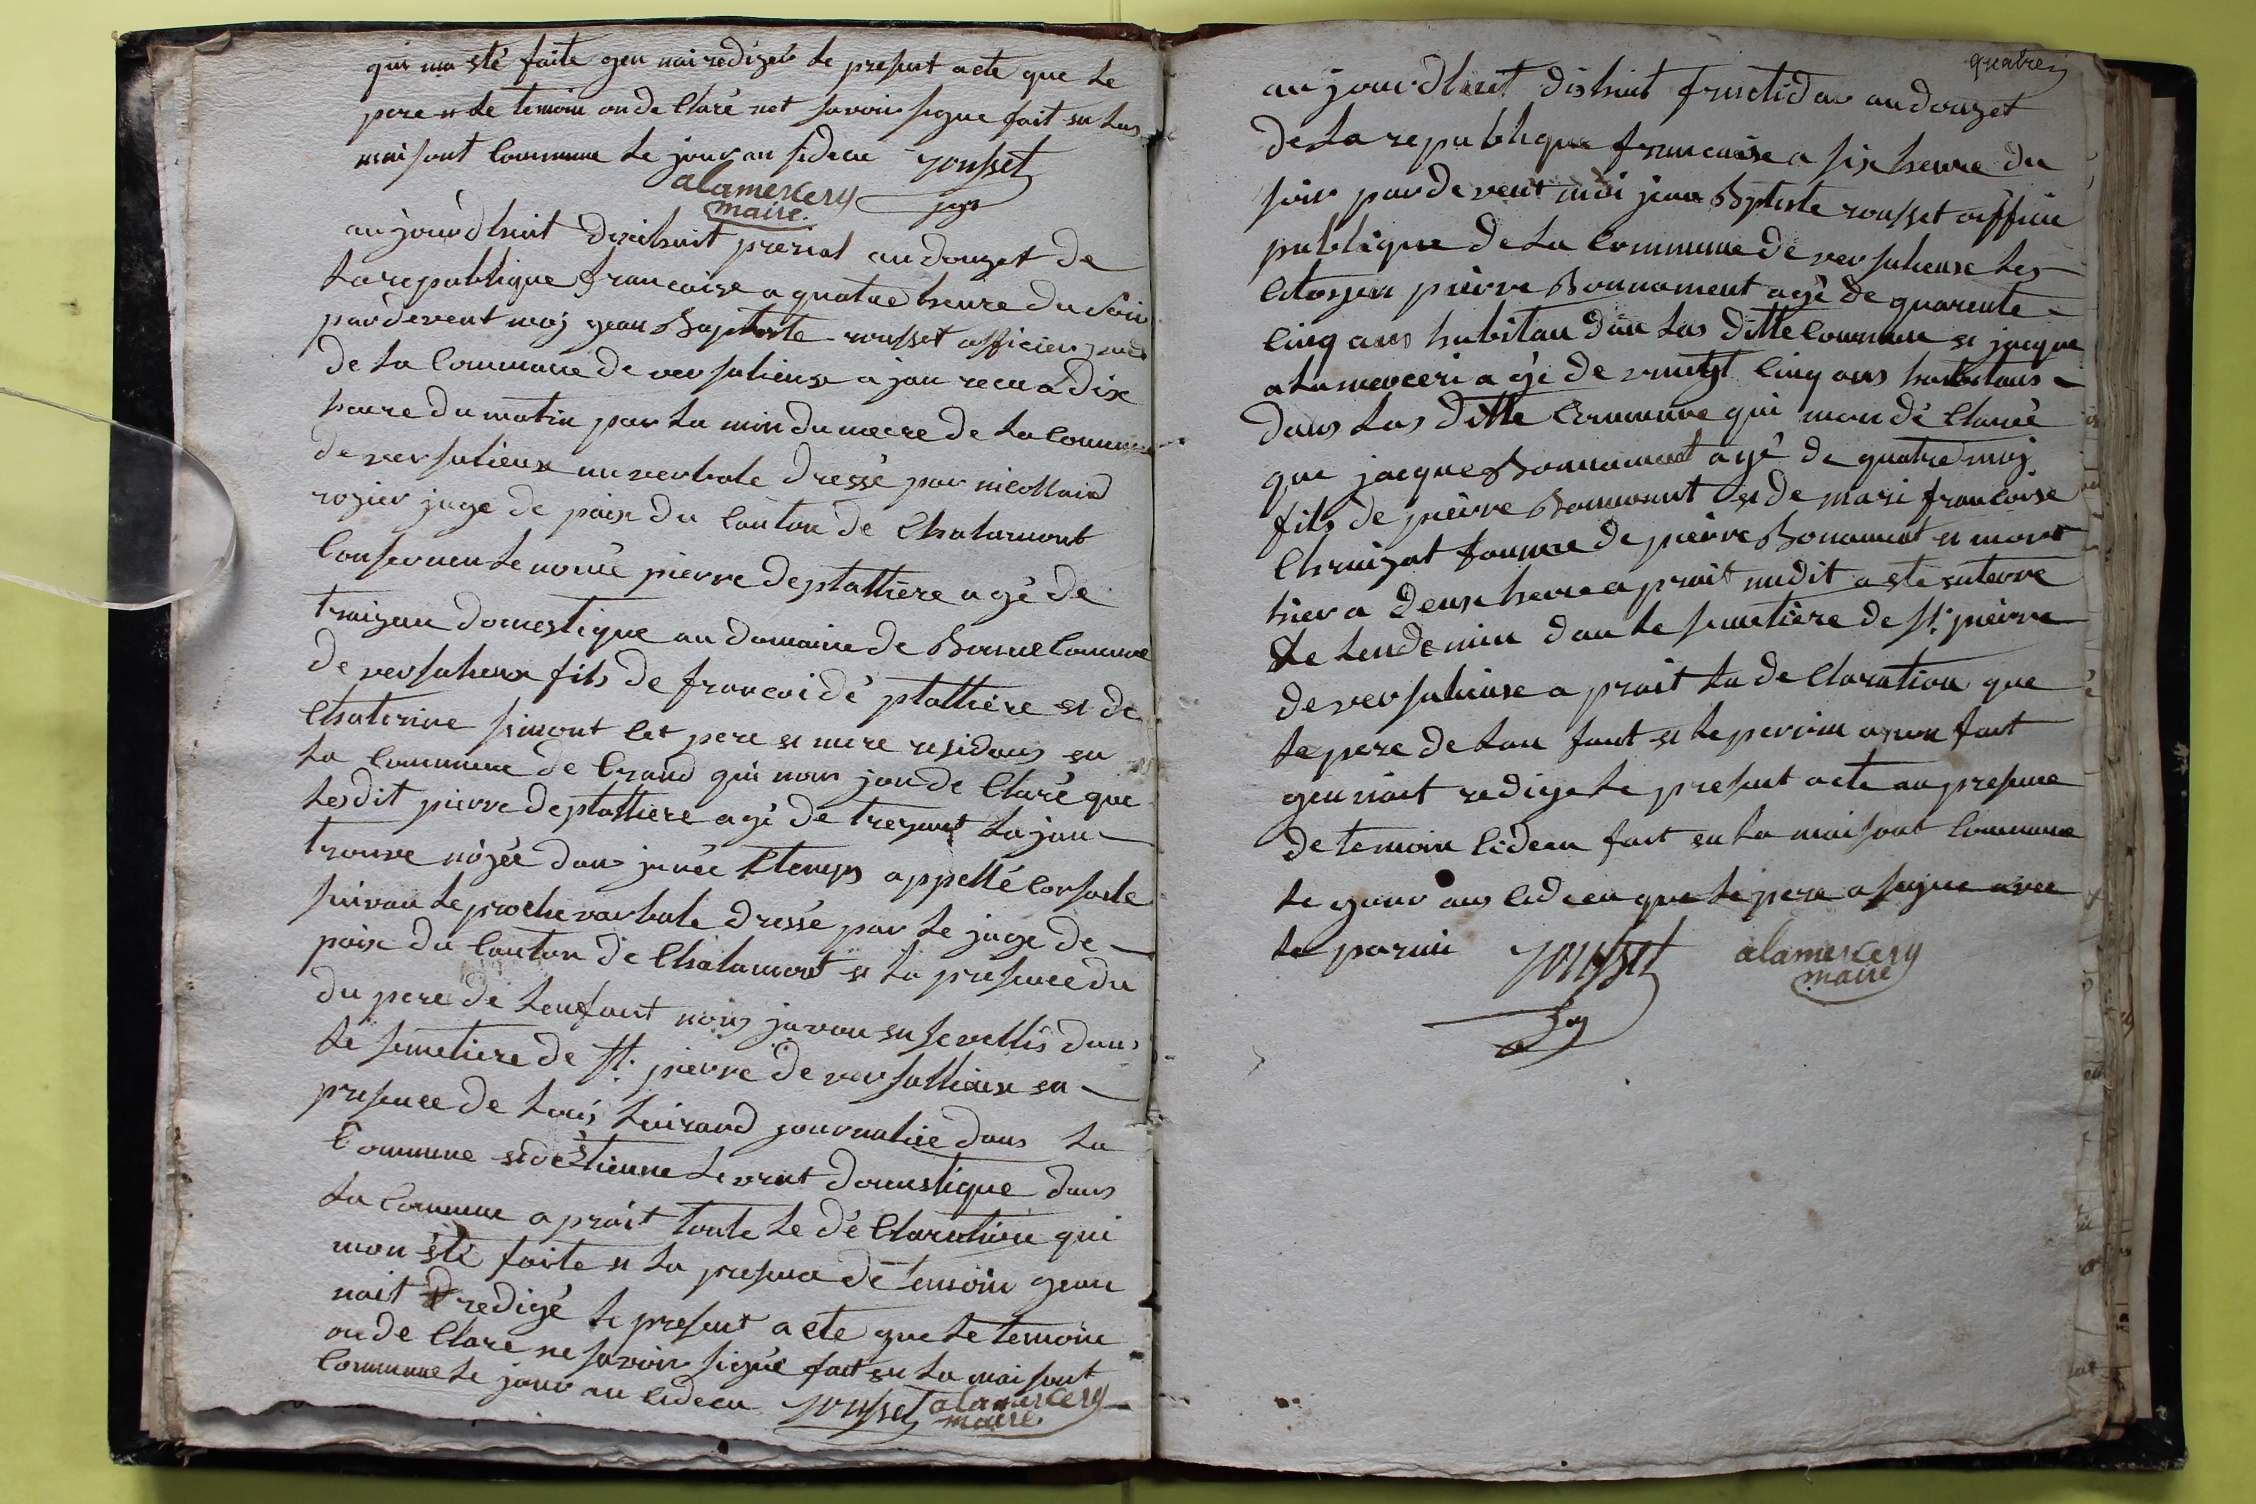 qui ma été faite gen nai redigée le presant acte que le
pere et le temoin on de Claré not savoir signe fait en las
maisont Commune le jour an sideçu rousset
alamercery
maire
aujourdhuit dixihuit prerial an douzet de
la republique francaise a quatre heure du soir
pardevent moj gean Baptiste rousset officier pub
de la Commune de versalieux a jan recu a dix
heure du matin par la min du mere de la Commune
de versalieux un verbale dressé par nicollaid
rozier juge de paix du Canton de Chalamont
Conserneu le nomé pierre deplattiere agé de
traizan domestique au domaine de Commune
de versalieux fils de francoi dé plattiere et de
Chaterine simont let pere et mere residans en
la Commune de Crand qui nom jan de Claré que
lesdit pierre deplattiere agé de trezant la jan
trouve nojée dans june etemps appellé Corsade
suivan le proche varbale dressé par le juge de
paix du Canton de Chalamont et la presence du
du pere de lenfant nois javon ensevellis dans
le semetiere de st. pierre de versallieux en
presence de Loui Luirand journalie dans la
Commune et détienne Levrat domestique dans
la Commune aprait toute le dé Claration qui
mon été faite et la presence de temoin gean
nait redigé le present acte que le temoin
on de Clare ne savoir signé fait en la maisont
Commune le jour an cideçu rousset alamercery
maire
quatre
aujourdhuit dishuit fructidor an douzet
de la republique francaise a six heure du
soir pardevent moi jean Bptiste rousset offficie
publique de la Commune de versalieuse les
Citoyen pierre Bonnament agé de quarente
Cinq ans habitan dan las ditte Commune et jacque
alamerceri agé de vintgt Cinq ans habitans
dans las ditte Commune qui mon dé Claré
que jacque Bonnament agé de quatre moj
fils de pierre Bonnament et de mari francoise
Chruizat famme de pierre Bonament et mort
hier a deux heure aprait midit a ete enterre
le lendemin dan le semetiere de st. pierre
de versalieuse aprait la de Claration que
le pere de lan fant et le parrin a non fait
gen nait redige le presant acte an presence
de temoin Cideçu fait en la maisont Commune
le jour ans Cideçu que le pere a signe avec
le parrin rousset alamercery
maire